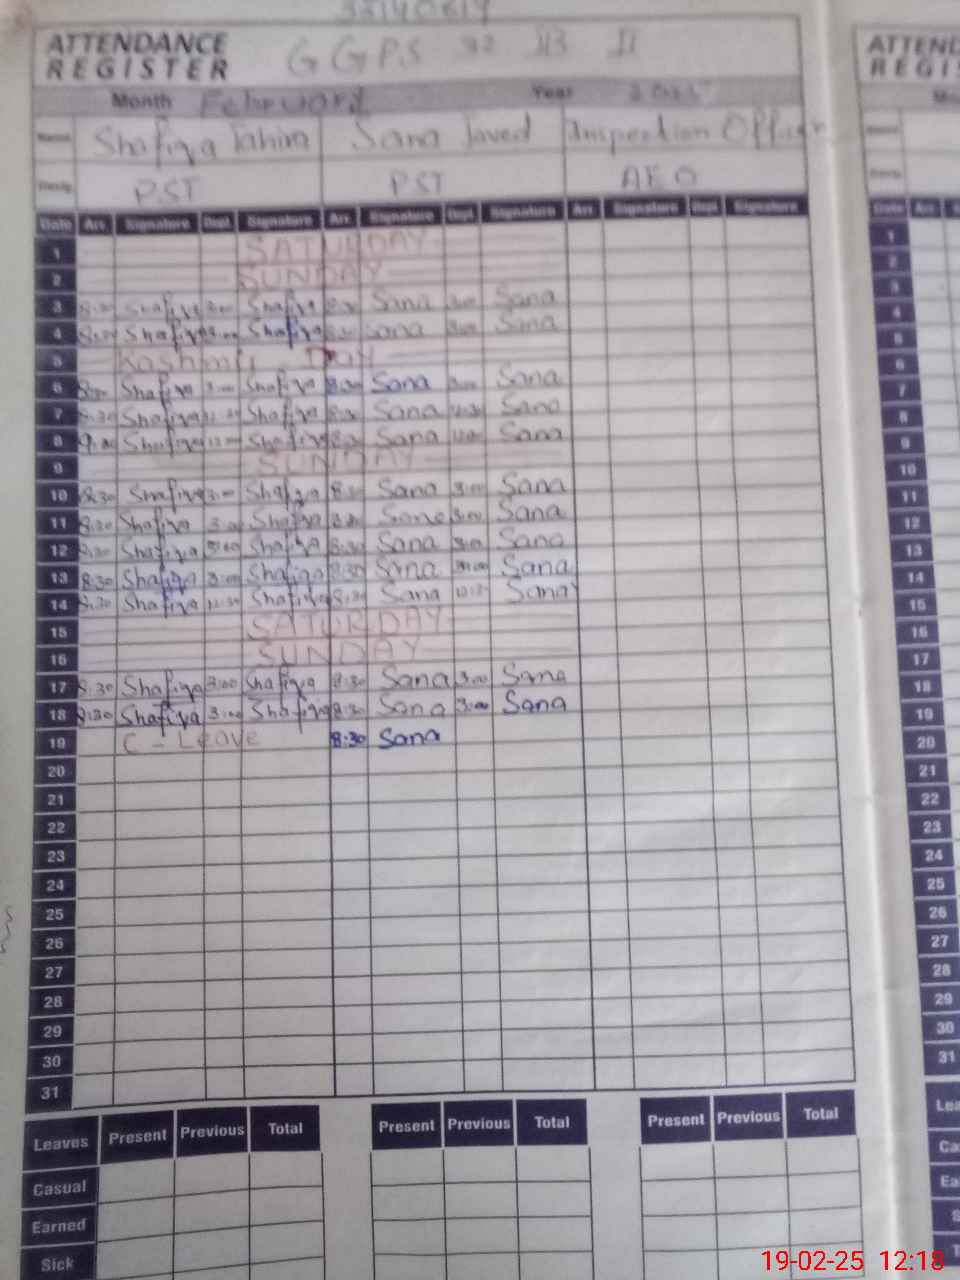 ATTENDANCE REGISTER GGPS JB II
Month February Year
Name Shafiqa Tahira Sana Javed Inspection Officer
Desig PST PST AEO
Date Arr. Signature Dept. Signature Arr. Signature Dept. Signature Arr. Signature Dept. Signature
1 SATURDAY
2 SUNDAY
3 8:30 Shafiqa 3:00 Shafiqa 8:30 Sana 3:00 Sana
4 8:30 Shafiqa 3:00 Shafiqa 8:30 Sana 3:00 Sana
5 Kashmir Day
6 Shafiqa 3:00 Shafiqa 8:30 Sana 3:00 Sana
7 8:30 Shafiqa 12:30 Shafiqa 8:30 Sana 12:30 Sana
8 Shafiqa Shafiqa Sana Sana
9 SUNDAY
10 8:30 Shafiqa 3:00 Shafiqa 8:30 Sana 3:00 Sana
11 8:30 Shafiqa 3:00 Shafiqa 8:30 Sana 3:00 Sana
12 8:30 Shafiqa 3:00 Shafiqa 8:30 Sana 3:00 Sana
13 8:30 Shafiqa 3:00 Shafiqa 8:30 Sana 3:00 Sana
14 8:30 Shafiqa 12:30 Shafiqa 8:30 Sana 12:30 Sana
15 SATURDAY
16 SUNDAY
17 8:30 Shafiqa 3:00 Shafiqa 8:30 Sana 3:00 Sana
18 8:30 Shafiqa 3:00 Shafiqa 8:30 Sana 3:00 Sana
19 C - Leave 8:30 Sana
20
21
22
23
24
25
26
27
28
29
30
31
Leaves Present Previous Total Present Previous Total Present Previous Total
Casual
Earned
Sick
ATTEND
REGIS
1
2
3
4
5
6
7
8
9
10
11
12
13
14
15
16
17
18
19
20
21
22
23
24
25
26
27
28
29
30
31
Lea
Ca
Ea
S
19-02-25 12:18